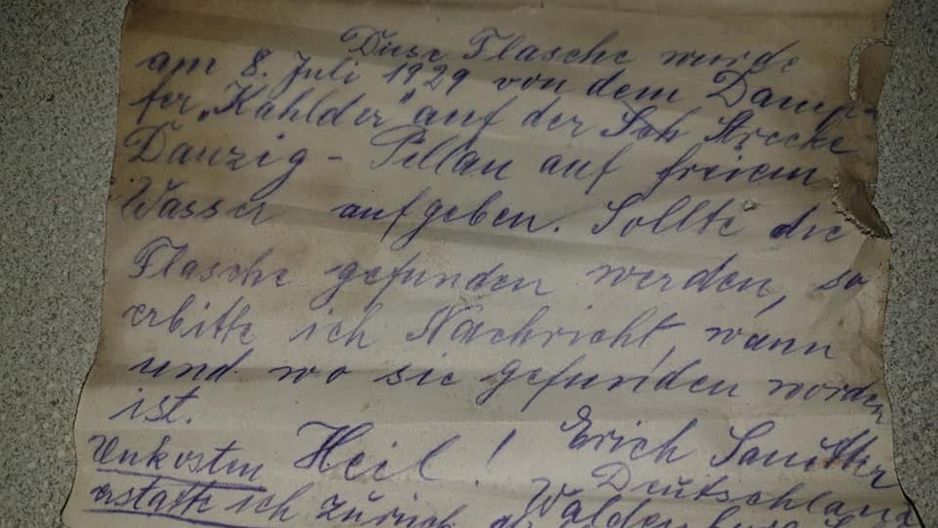 Diese Flasche wurde
am 8. Juli 1929 von dem Damp-
fer „Kahlder" auf der Strecke
Danzig - Pillau auf freiem
Wasser aufgeben. Sollte die
Flasche gefunden werden, so
erbitte ich Nachricht, wann
und wo sie gefunden worden
ist.
Heil! Erich
Unkosten Deutschland
erstatte ich zurück